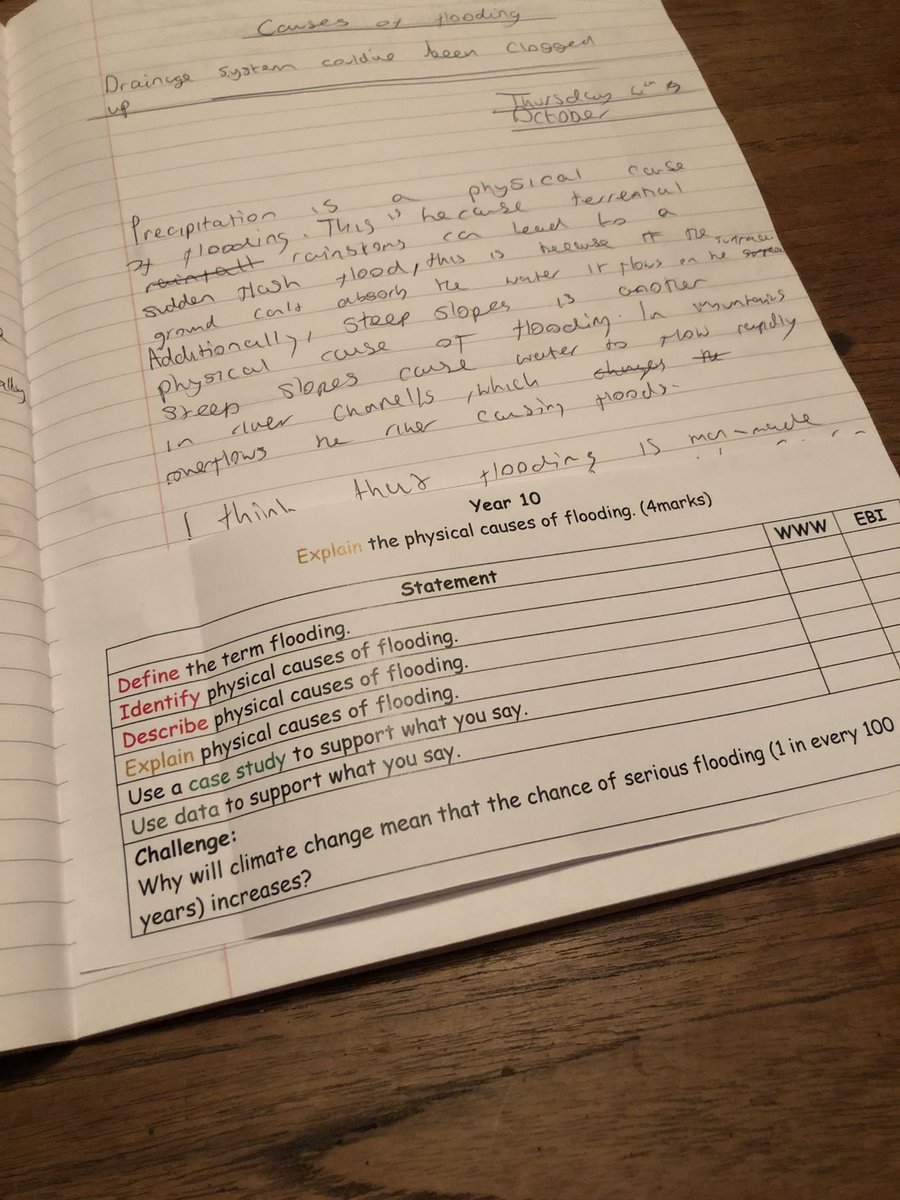 Causes of flooding
Drainage system could've been clogged
up
Thursday 4th
October
Precipitation is a physical cause
of flooding. This is because terrential
rainfall rainstorms can lead to a
sudden flash flood, this is because if the
ground can't absorb the water it flows on the surface.
Additionally, steep slopes is another
physical cause of flooding. In mountains
steep slopes cause water to flow rapidly
in river channells, which changes the
overflows the river causing floods.
I think that flooding is man-made
Year 10
Explain the physical causes of flooding. (4marks)
Statement WWW EBI
Define the term flooding.
Identify physical causes of flooding.
Describe physical causes of flooding.
Explain physical causes of flooding.
Use a case study to support what you say.
Use data to support what you say.
Challenge:
Why will climate change mean that the chance of serious flooding (1 in every 100
years) increases?